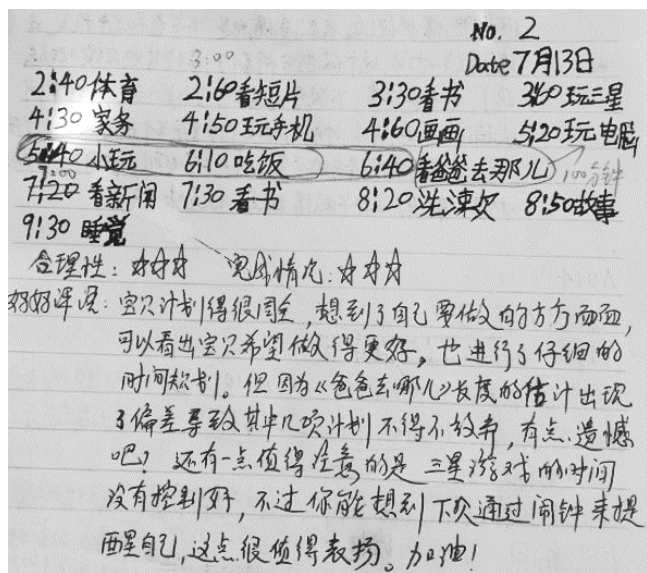 No. 2
3:00 Date 7月13日
2:40体育 2:60看短片 3:30看书 3:60玩三星
4:30家务 4:50玩手机 4:60画画 5:20玩电脑
5:40小玩 6:10吃饭 6:40看爸爸去那儿 100分钟
7:00
7:20看新闻 7:30看书 8:20洗漱 8:50故事
9:30睡觉
合理性:☆☆☆ 完成情况:☆☆☆
妈妈评价:宝贝计划得很周全,想到了自己要做的方方面面,
可以看出宝贝希望做得更好,也进行了仔细的
时间规划。但因为《爸爸去哪儿》长度的估计出现
了偏差导致其中几项计划不得不放弃,有点遗憾
吧?还有一点值得注意的是三星游戏的时间
没有控制好,不过你能想到下次通过闹钟来提
醒自己,这点很值得表扬。加油!